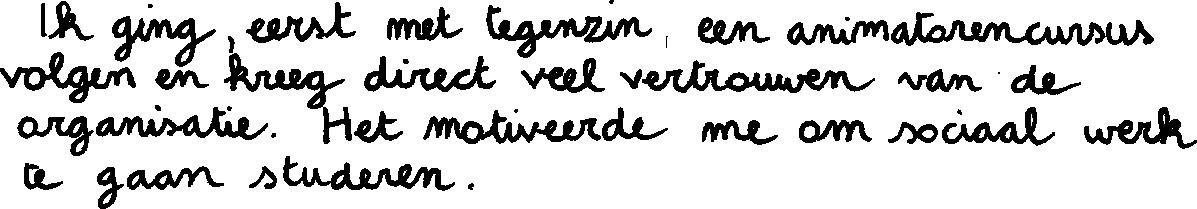 Ik ging, eerst met tegenzin, een animatorencursus
volgen en kreeg direct veel vertrouwen van de
organisatie. Het motiveerde me om sociaal werk
te gaan studeren.